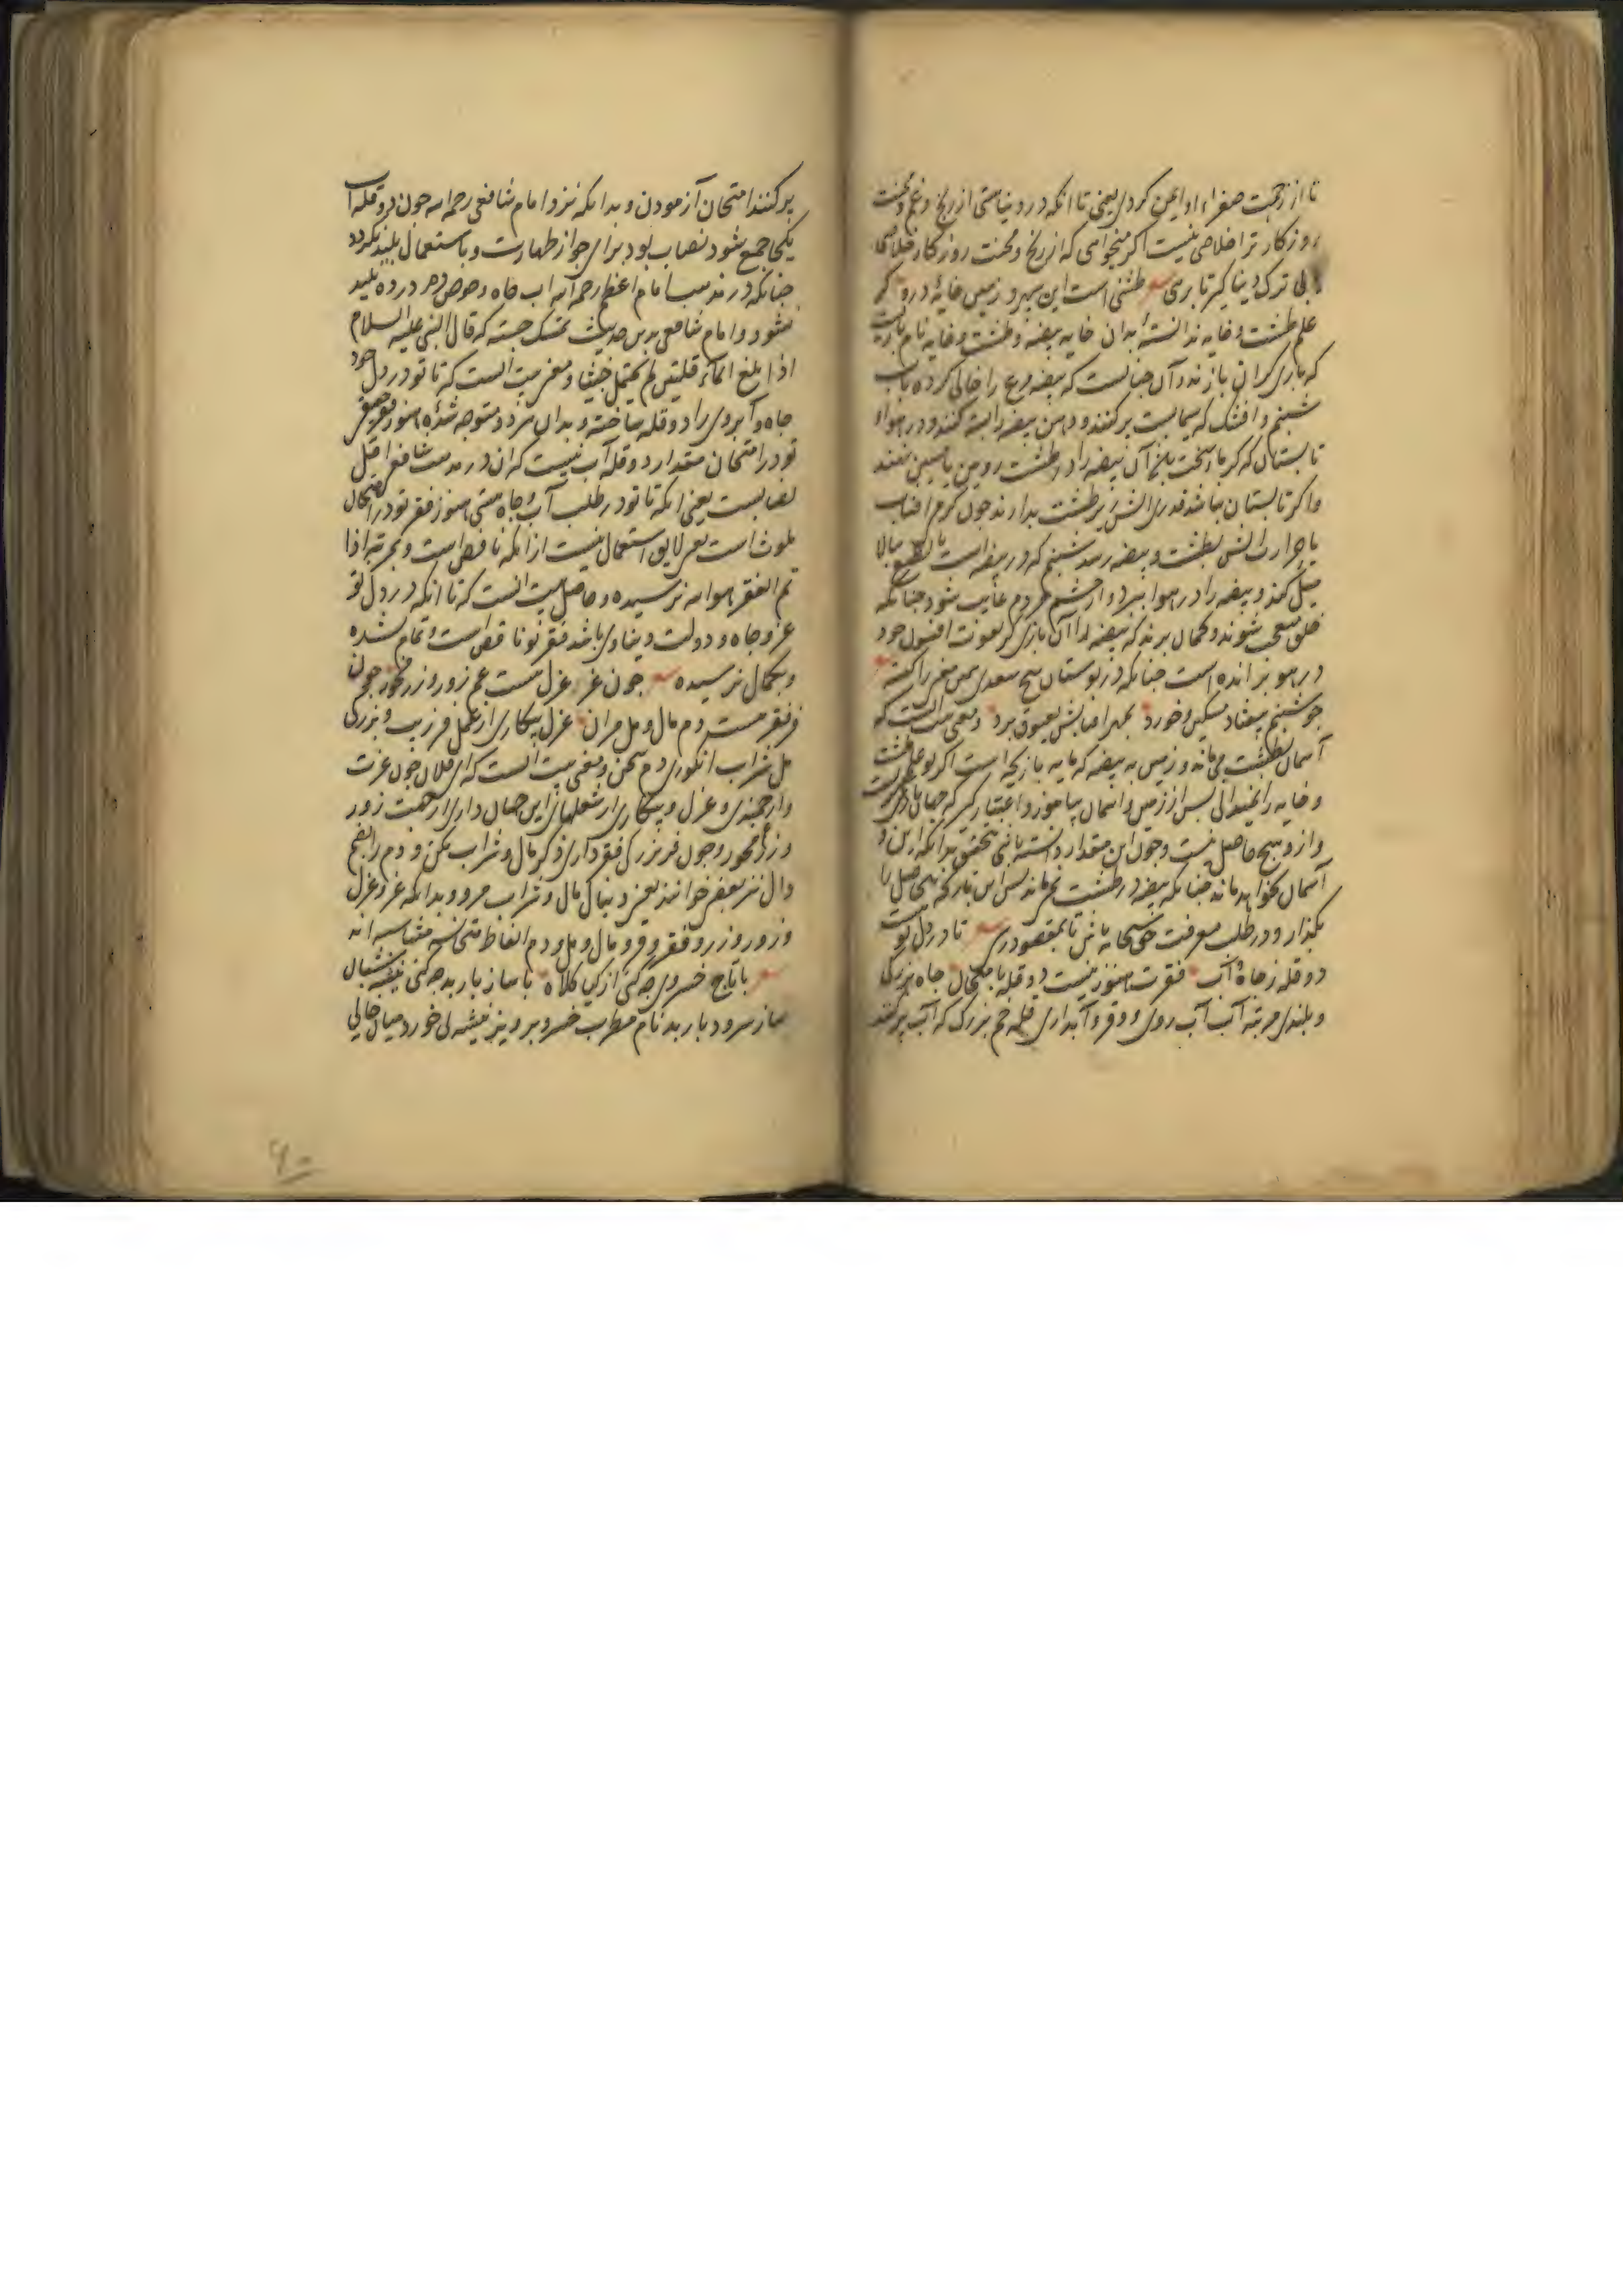 تا از زحمت صفراء او ایمن کردی یعنی تا انکه در دنیا هستی از رنج و غم و محنت
روزکار ترا خلاصی نیست اکر میخواهی که از رنج و محنت روزکار خلاص
یابی ترک دنیا کیر تا بری طشتی است این سپهر و زمین خایۀ درو کر
علم طشت و خایه ندانستۀ بدان خایه بیضه و طشت و خایه نام بازیست
که بازی کران بازند و آن چنانست که بیضه مرغ را خالی کرده باب
شبنم و افشک که سیمابست پر کنند و دهن بیضه را بسته کنند و در هواء
تابستان که کرما سخت بتابد آن بیضه را در طشت رویین یا مسین نهند
و اکر تابستان نباشد قدری اتش زیر طشت بدارند چون کرمی افتاب
یا حرارت اتش بطشت و بیضه رسد شبنم که در بیضه است بالطبع ببالا
میل کند و بیضه را در هوا ببرد و از چشم مردم غایب شود چنانکه
خلق متعجب شوند و کمان برند که بیضه را آن بازی کر بعونت افسون خود
در هوا پرانده است چنانکه در بوستان شیخ سعدی همین معنی را کفته
چو شبنم بیفتاد مسکین و خورد بمهر افتابش بعیوق برد و معنی بیت انست که
آسمان بطشت می ماند و زمین به بیضه که مایه بازیچه است اکر تو علم طشت
و خایه را نمیدانی پس از زمین و اسمان بیاموز و اعتبار کیر که جهان بازیکریست
و ازو هیچ حاصل نیست و چون این مقدار دانسته باشی بتحقیق بدانکه این و
آسمان نخواهد ماند چنانکه بیضه در طشت نمی ماند پس این کار بی حاصل را
بکذار و در طلب معرفت حق سبحانه باش تا بمقصود رسی تا در دل تو است
دو قله ز جاه و آب فقرت هنوز نیست دو قله بامتحان جاه بزرکی
و بلندی مرتبه آب آب روی و وقر و آبداری قله خم بزرک که آب پر کنند
پر کنند امتحان آزمودن و بدانکه نزد امام شافعی رحمه الله چون دو قله آب
یکجا جمع شود نصاب بود برای جواز طهارت و باستعمال پلید نکردد
چنانکه در مذهب امام اعظم رحمه الله اب چاه و حوض ده در ده پلید
نشود و امام شافعی بدین حدیث تمسک جسته که قال النبی علیه السلام
اذا بلغ الماء قلتین لم یحتمل خبثا و معنی بیت انست که تا تو در دل خود
جاه و آبروی را دو قله ساخته و بدان متوجه شدۀ هنوز فقر حقیقی
تو در امتحان مقدار دو قله آب نیست که ان در مذهب شافعی اقل
نصابست یعنی انکه تا تو در طلب آب و جاه هستی هنوز فقر تو در امتحان
ملوث است یعنی لایق استعمال نیست از انکه ناقص است و بمرتبه اذا
تم الفقر هو الله نرسیده و حاصل بیت انست که تا انکه در دل تو
عز و جاه و دولت دنیاوی باشد فقر تو ناقص است و تمام نشده
و بکمال نرسیده چون عز عزل هست غم زور و زر مخور چون
فر فقر هست دم مال و مل مران عزل بیکاری از عمل فر زیب و بزرکی
مل شراب انکوری دم سخن و معنی بیت انست که ای فلان چون عزت
و ارجمندی و عزل و بیکاری از شغلهای این جهان داری زحمت زور
و زر مخور و چون فر بزرکی فقر داری ذکر مال و شراب مکن و دم را بفتح
دال نیز بعضی خوانند یعنی دنبال مال و شراب مرو و بدانکه عز و عزل
و زور و زر و فقر و فر و مال و مل و دم الفاظ متجانسه متناسبه اند
با تاج خسروی چه کنی از کیا کلاه با ساز باربد چه کنی پیشه شبان
ساز سرود باربد نام مطرب خسرو پرویز پیشه نی خورد میان خالی